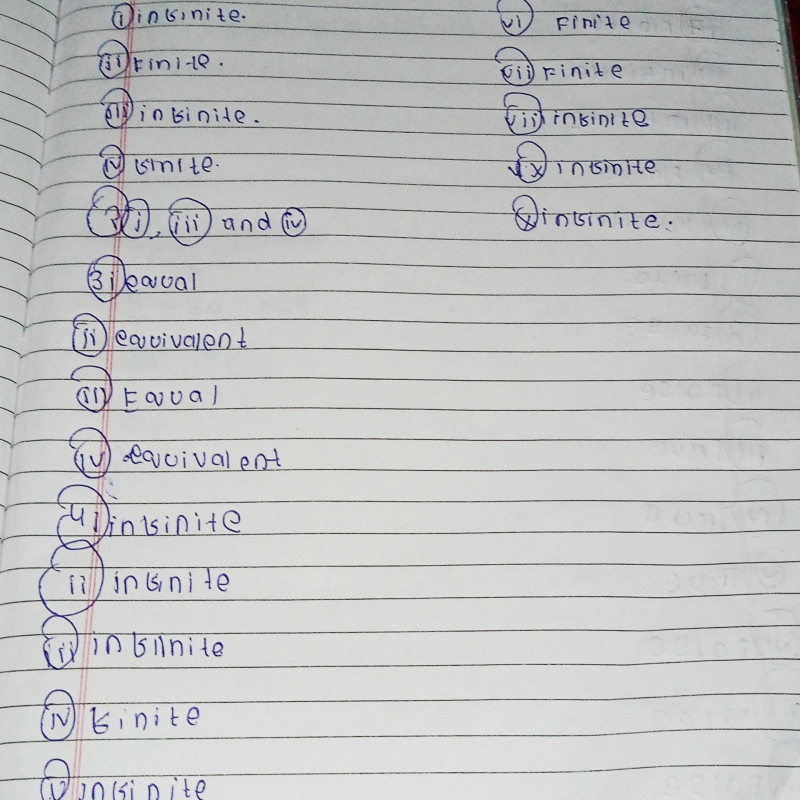 i) infinite.
ii) Finite.
iii) infinite.
iv) finite.
2) i), iii) and iv)
3 i) equal
ii) equivalent
iii) Equal
iv) equivalent
4 i) infinite
ii) infinite
iii) infiinite
iv) finite
v) infinite
vi) Finite
vii) Finite
vii) infinite
ix) infinite
x) infinite.